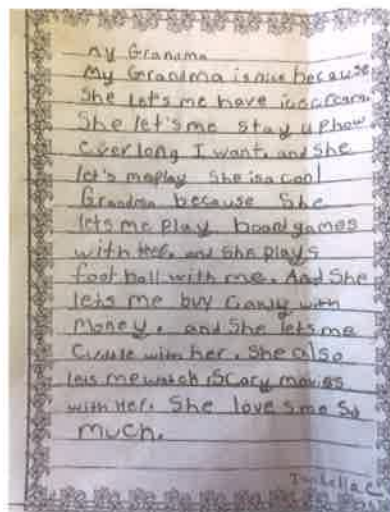 My Grandma
My Grandma is nice because
She let's me have icecream.
She let's me stay up how
ever long I want. and She
let's me play She is a cool
Grandma because She
lets me play board games
with Her. and She plays
foot ball with me. And She
lets me buy Candy with
Money. and She lets me
Cuddle with her. She also
lets me watch Scary movies
with Her. She love s me So
much.